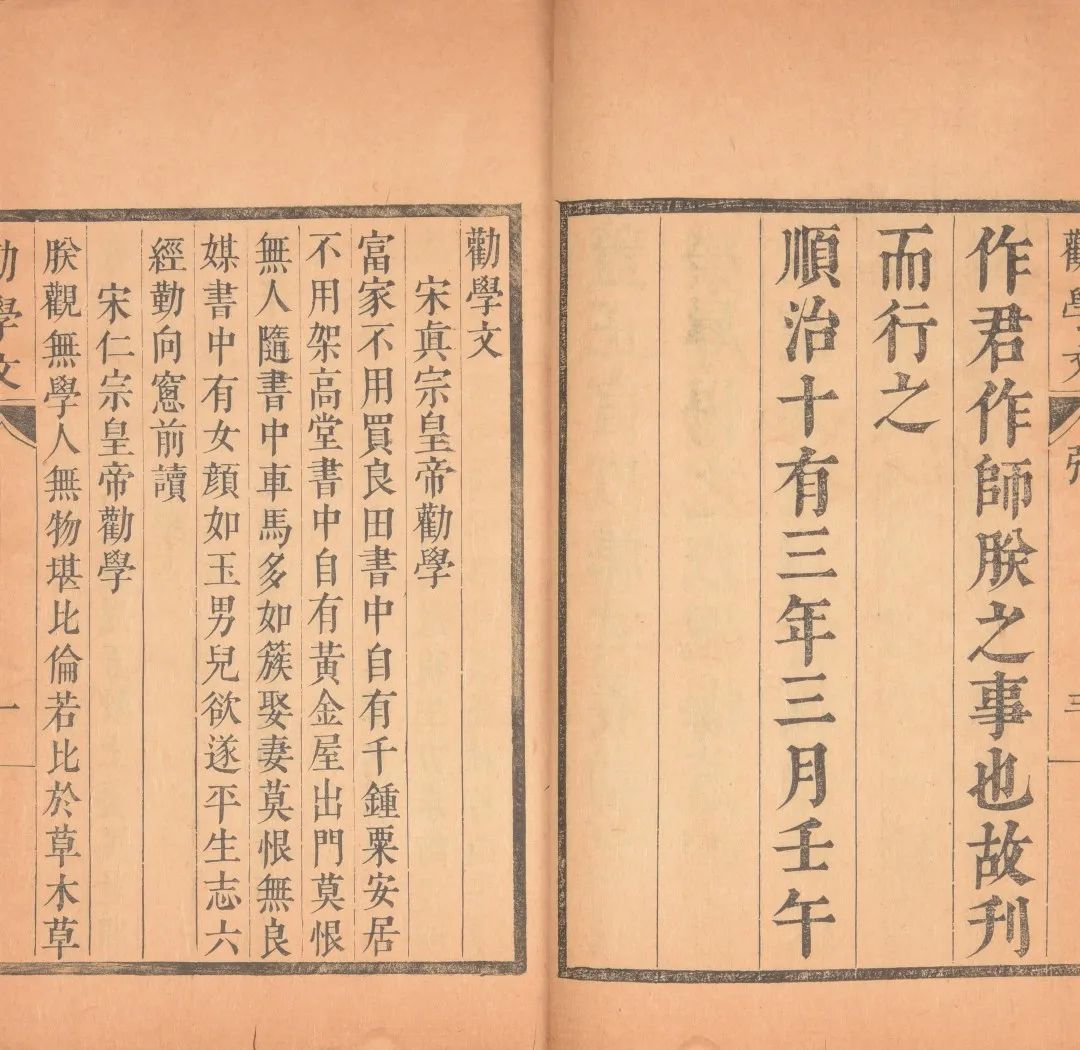 勸學文
三
作君作師朕之事也故刋
而行之
順治十有三年三月壬午
勸學文
宋眞宗皇帝勸學
富家不用買良田書中自有千鍾粟安居
不用架高堂書中自有黃金屋出門莫恨
無人隨書中車馬多如簇娶妻莫恨無良
媒書中有女顔如玉男兒欲遂平生志六
經勤向窻前讀
宋仁宗皇帝勸學
朕觀無學人無物堪比倫若比於草木草
勸學文
一